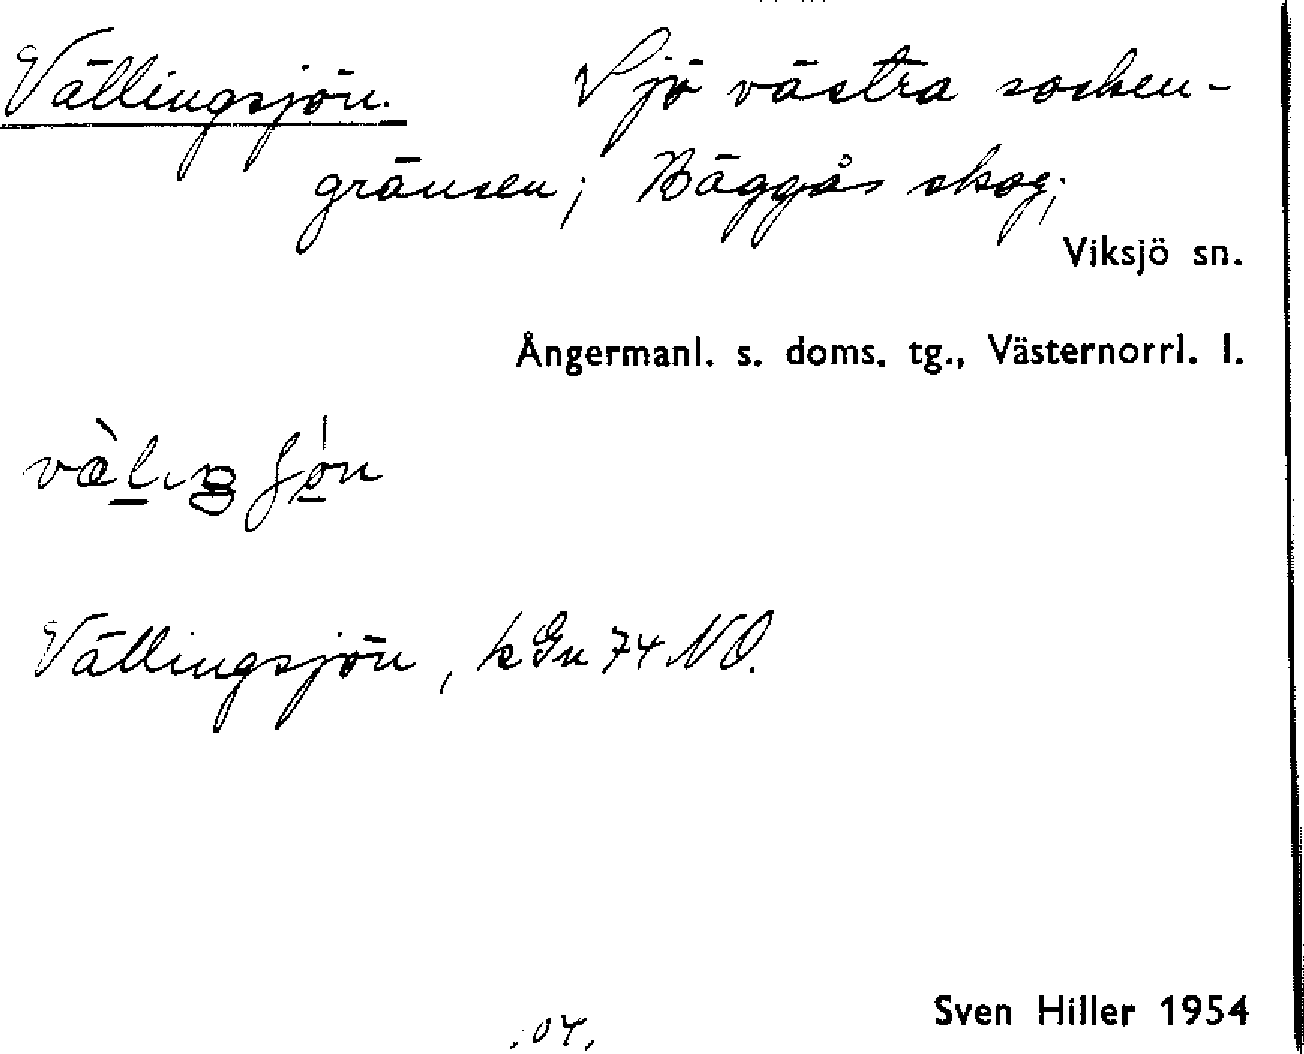 Vällingsjön. Sjö västra socken-
gränsen; Bäggås skog;
Viksjö sn.
Ångermanl. s. doms. tg., Västernorrl. l.
Vällingsjön, k Gn 74 NO.
Sven Hiller 1954